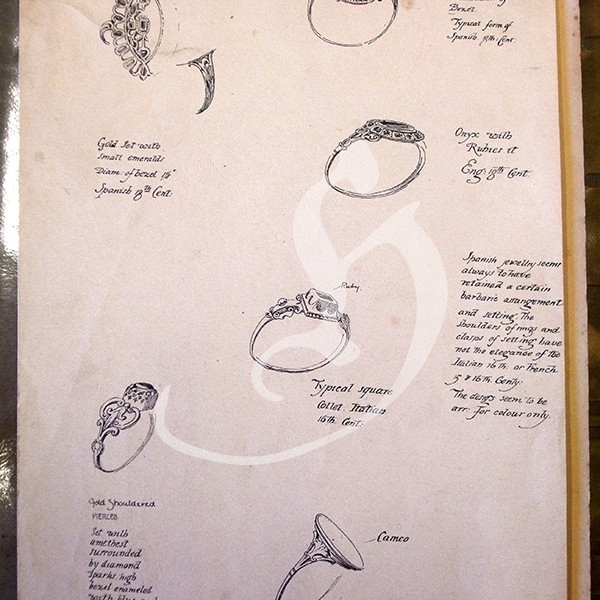 Bezel.
Typical form of
Spanish 18th Cent.
Gold Set with
small emeralds
Diam: of bezel 1½"
Spanish 18th Cent:
Onyx with
Rubies it
Eng: 18th Cent
Ruby.
Spanish jewellry seems
always to have
retained a certain
barbaric arrangement
and setting. The
shoulders of rings and
clasps of setting have
not the elegance of the
Italian 16th. or French
15 & 16th. Centy:
The desigs seem to be
arr. for colour only.
Typical square
Collet. Italian
16th. Cent:
Gold Shouldered
PIERCED
Set with
amethest
surrounded
by diamond
sparks, high
bezel enameled
with blue and
Cameo